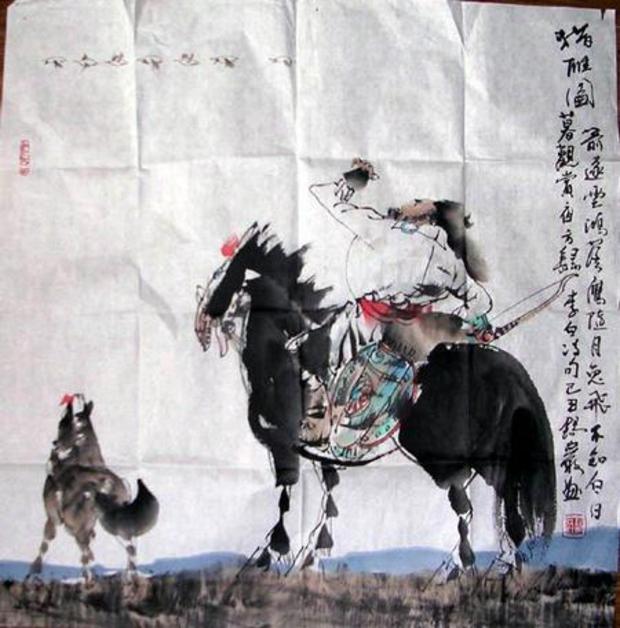 猎雕圖
箭逐雲鴻落鷹随月兔飛不知白日
暮觀賞夜方歸 李白诗句己丑